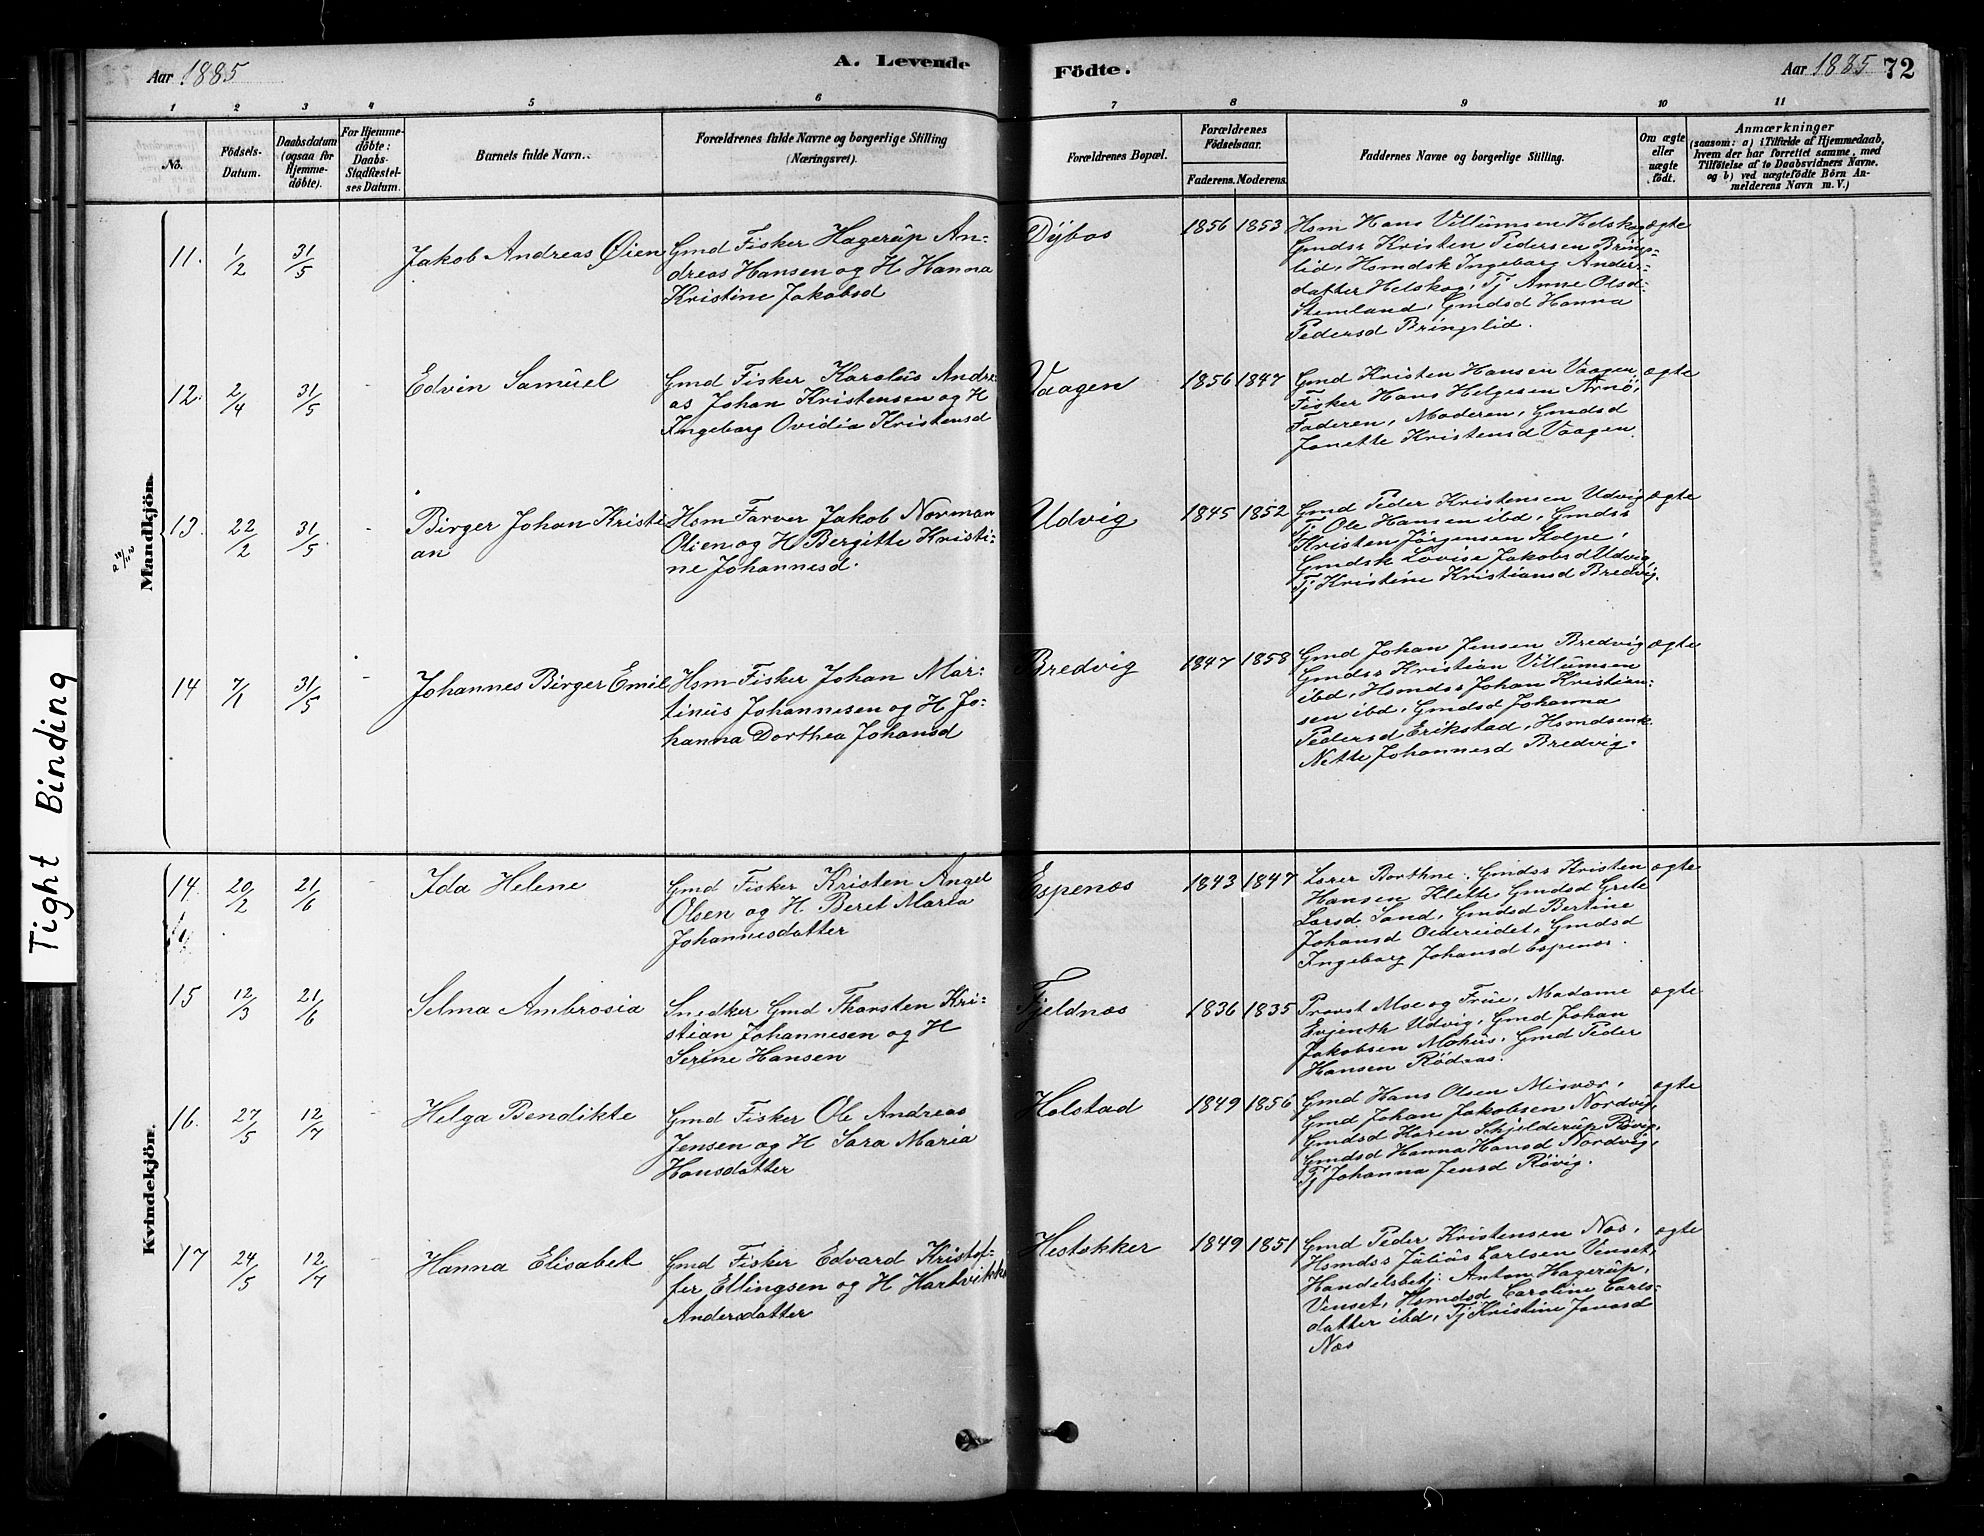 Aar 1885
A. Levende
Födte.
Aar 1885
72
1 2 3 4 5 6 7 8 9 10 11
No.
Födsels-
Datum.
Daabsdatum
(ogsaa for
Hjemme-
döbte).
For Hjemme-
döbte:
Daabs-
Stadfæstel-
ses Datum.
Barnets fulde Navn.
Forældrenes fulde Navne og borgerlige Stilling
(Næringsvei).
Forældrenes Bopæl.
Forældrenes
Födselsaar.
Faderens. Moderens.
Faddernes Navne og borgerlige Stilling.
Om ægte
eller
uægte
födt.
Anmærkninger
(saasom: a) i Tilfælde af Hjemmedaab,
hvem der har forrettet samme, med
Tilföielse af to Daabsvidners Navne.
og b) ved uægtefödte Börn An-
melderens Navn m. V.)
Mandkjön.
11. 1/2 31/5
Jakob Andreas Øien
Gmd Fisker Hagerup An-
dreas Hansen og H Hanna
Kristine Jakobsd
Dybos
1856 1853
Hsm Hans Villumsen Helskog
Gmdss Kristen Pedersen Brings-
lid, Hsmdsk Ingeborg Anders-
datter Helskog, Tj Anne Olsd
Stemland, Gmdsd Hanna
Pedersd Bringslid.
ægte
12. 2/4 31/5 -
Edvin Samuel
Gmd Fisker Karolus Andre-
as Johan Kristensen og H
Ingeborg Ovidia Kristensd
Vaagen
1856 1847
Gmd Kristen Hansen Vaagen,
Fisker Hans Helgesen Arnö,
Faderen, Moderen, Gmdsd
Jonette Kristensd Vaagen.
ægte
13. 22/2 31/5 -
Birger Johan Kristi
an
Hsm Farver Jakob Norman
Olien og H Bergitte Kristi-
ne Johannesd.
Udvig
1845 1852
Gmd Peder Kristensen Udvig
Tj Ole Hansen ibd, Gmdss
Kristen Jörgensen Stolpe,
Gmdsk Lovise Jakobsd Udvig,
Tj Kristine Kristiansd Bredvig.
ægte
14 7/1 31/5 -
Johannes Birger Emil
Hsm Fisker Johan Mar-
tinus Johannesen og H Jo-
hanna Dorthea Johansd
Bredvig
1847 1858
Gmd Johan Jensen Bredvig
Gmdss Kristian Villumsen
ibd, Hsmdss Johan Kristian-
sen ibd, Gmdsd Johanna
Pedersd Erikstad, Hsmdsenk.
Nette Johannesd Bredvig.
ægte
Kvindekjön.
14. 20/2 21/6 -
Ida Helene
Gmd Fisker Kristen Angel
Olsen og H. Beret Maria
Johannesdatter
Espenæs
1843 1847
Lærer Borthne, Gmdss Kristen
Hansen Klette, Gmdsd Grete
Larsd Sand, Gmdsd Bertine
Johansd Oldereidet, Gmdsd
Ingeborg Johansd Espenæs.
ægte
15 12/3 21/6
Selma Ambrosia
Snedker Gmd Thorsten Kri-
stian Johannesen og H
Serine Hansen
Fjeldnæs
1836 1835
Provst Moe og Frue, Madame
Evjenth Udvig, Gmd Johan
Jakobsen Mohus, Gmd Peder
Hansen Rödaas.
ægte
16. 27/5 12/7 -
Helga Bendikte
Gmd Fisker Ole Andreas
Jensen og H Sara Maria
Hansdatter
Holstad
1849 1856
Gmd Hans Olsen Misvær,
Gmd Johan Jakobsen Nordvig,
Gmdsd Karen Schjelderup Røvig,
Gmdsd Hanna Hansd Nordvig,
Tj Johanna Jensd Røvig.
ægte
17 24/5 12/7 -
Hanna Elisabet
Gmd Fisker Edvard Kristof-
fer Ellingsen og H Hartvikke
Andersdatter
Hestakker
1849 1851
Gmd Peder Kristensen Næs,
Hsmdss Julius Carlsen Venset,
Handelsbetj. Anton Hagerup,
Venset, Hsmdsd Caroline Carls-
datter ibd, Tj Kristine Jonasd
Næs
ægte
Tight Binding